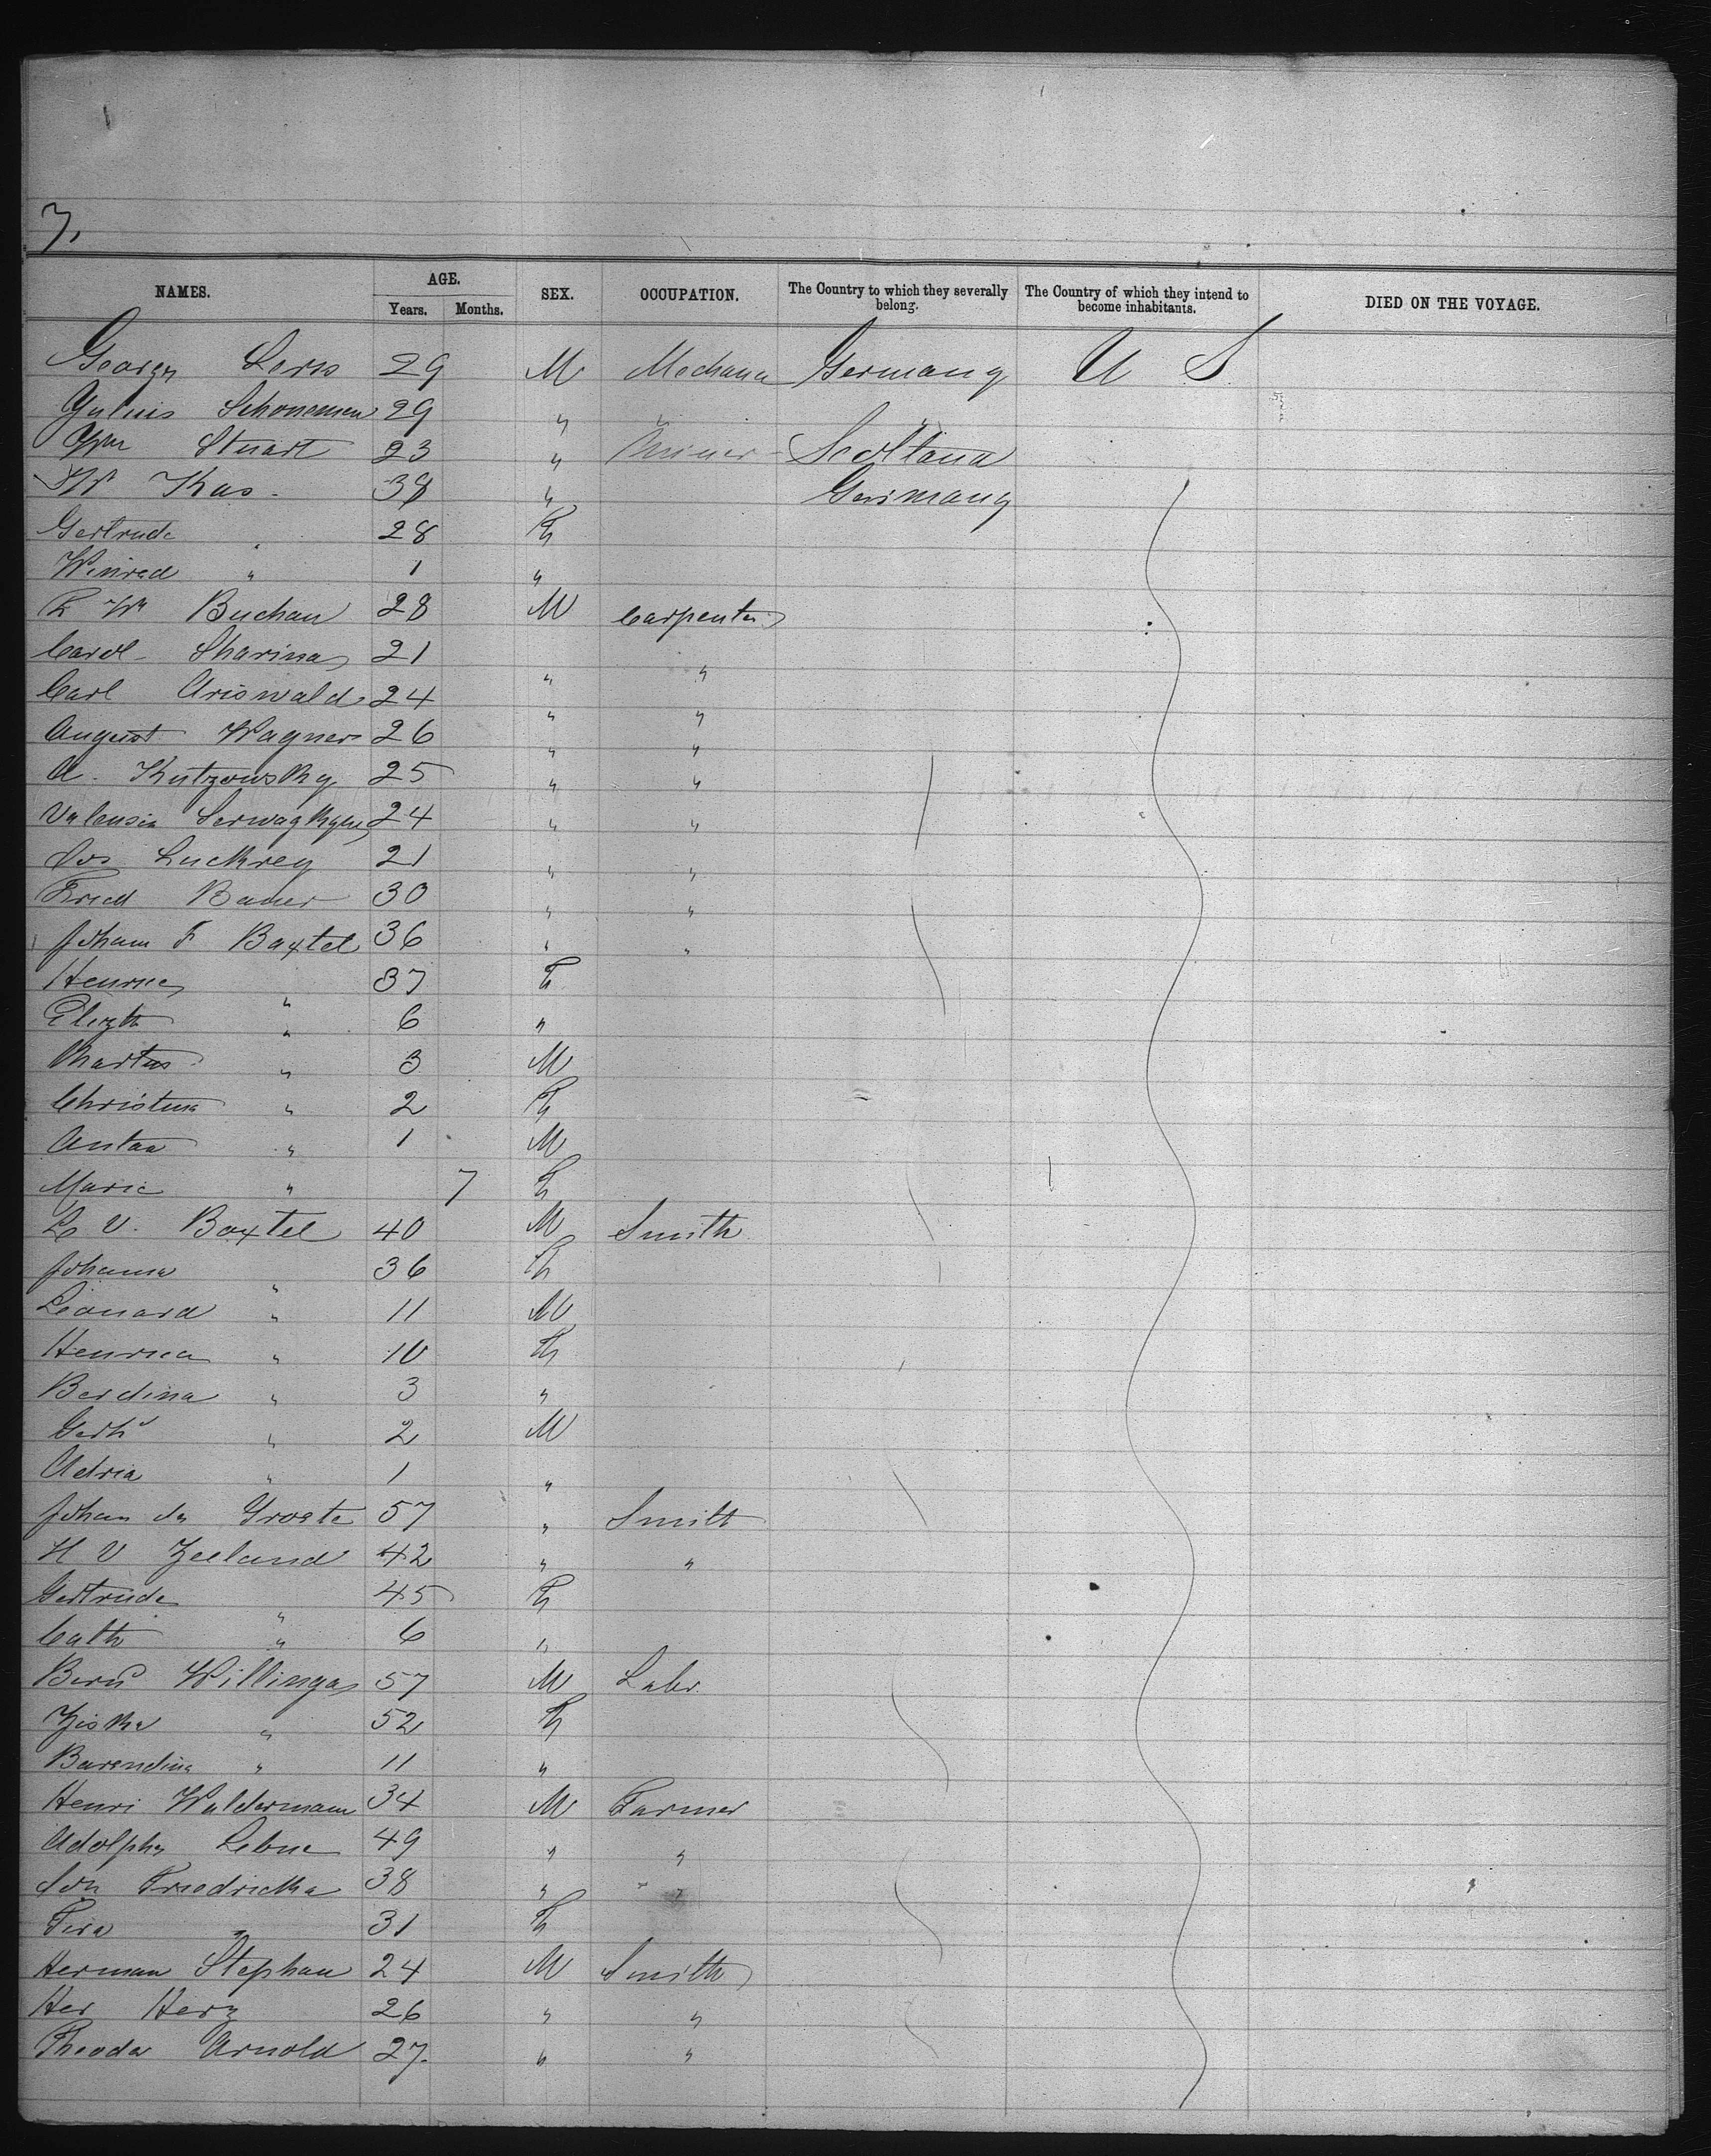 7.
NAMES. AGE. SEX. OCCUPATION. The Country to which they severally belong. The Country of which they intend to become inhabitants. DIED ON THE VOYAGE.
Years. Months.
Georg Lerss 29 M Mechanic Germany U S
Julius Schoneman 29 " " "
Wm Stuart 23 " Miner Scotland
Wm Kas 38 " Germany
Gertrude " 28 F
Winred " 1 "
F Wm Buchan 28 M Carpenter
Carol Sharina 21 " "
Carl Ariswald 24 " "
August Wagner 26 " "
A. Kutzowsky 25 " "
Valensia 24 " "
Jos Luckrey 21 " "
Fried Bauer 30 " "
Joham F Baxtel 36 " "
Henrica " 37 F
Elizth " 6 "
Martus " 3 M
Christina " 2 F
Anton " 1 M
Marie " 7 F
L V. Boxtel 40 M Smith
Johanna " 36 F
Leonard " 11 M
Henrica " 10 F
Berdina " 3 "
Gerhd " 2 M
Adria " 1 "
Johan de Groote 57 " Smith
H V Zeeland 42 " "
Gertrude " 45 F
Cath " 6 "
Bernd Willinga 57 M Labr.
Ziska " 52 F
Barendina " 11 "
Henri Waldermann 34 M Farmer
Adolphy Lebue 49 " "
Jon Friedricka 38 " "
Fera " 31 F
Herman Stephan 24 M Smith
Her Herz 26 " "
Theodor Arnold 27. " "